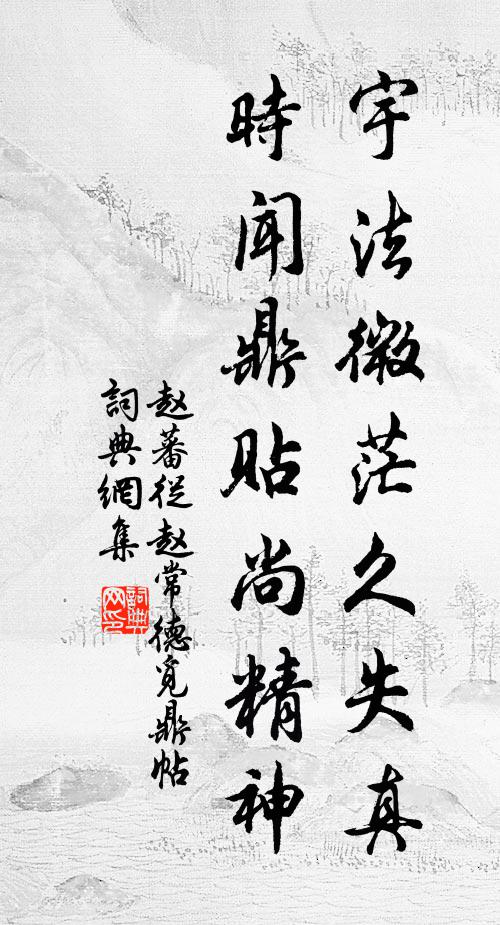 宇法微茫久失真
時聞鼎貼尚精神
赵蕃從赵常德覓鼎帖
詞典網集
詞典网印